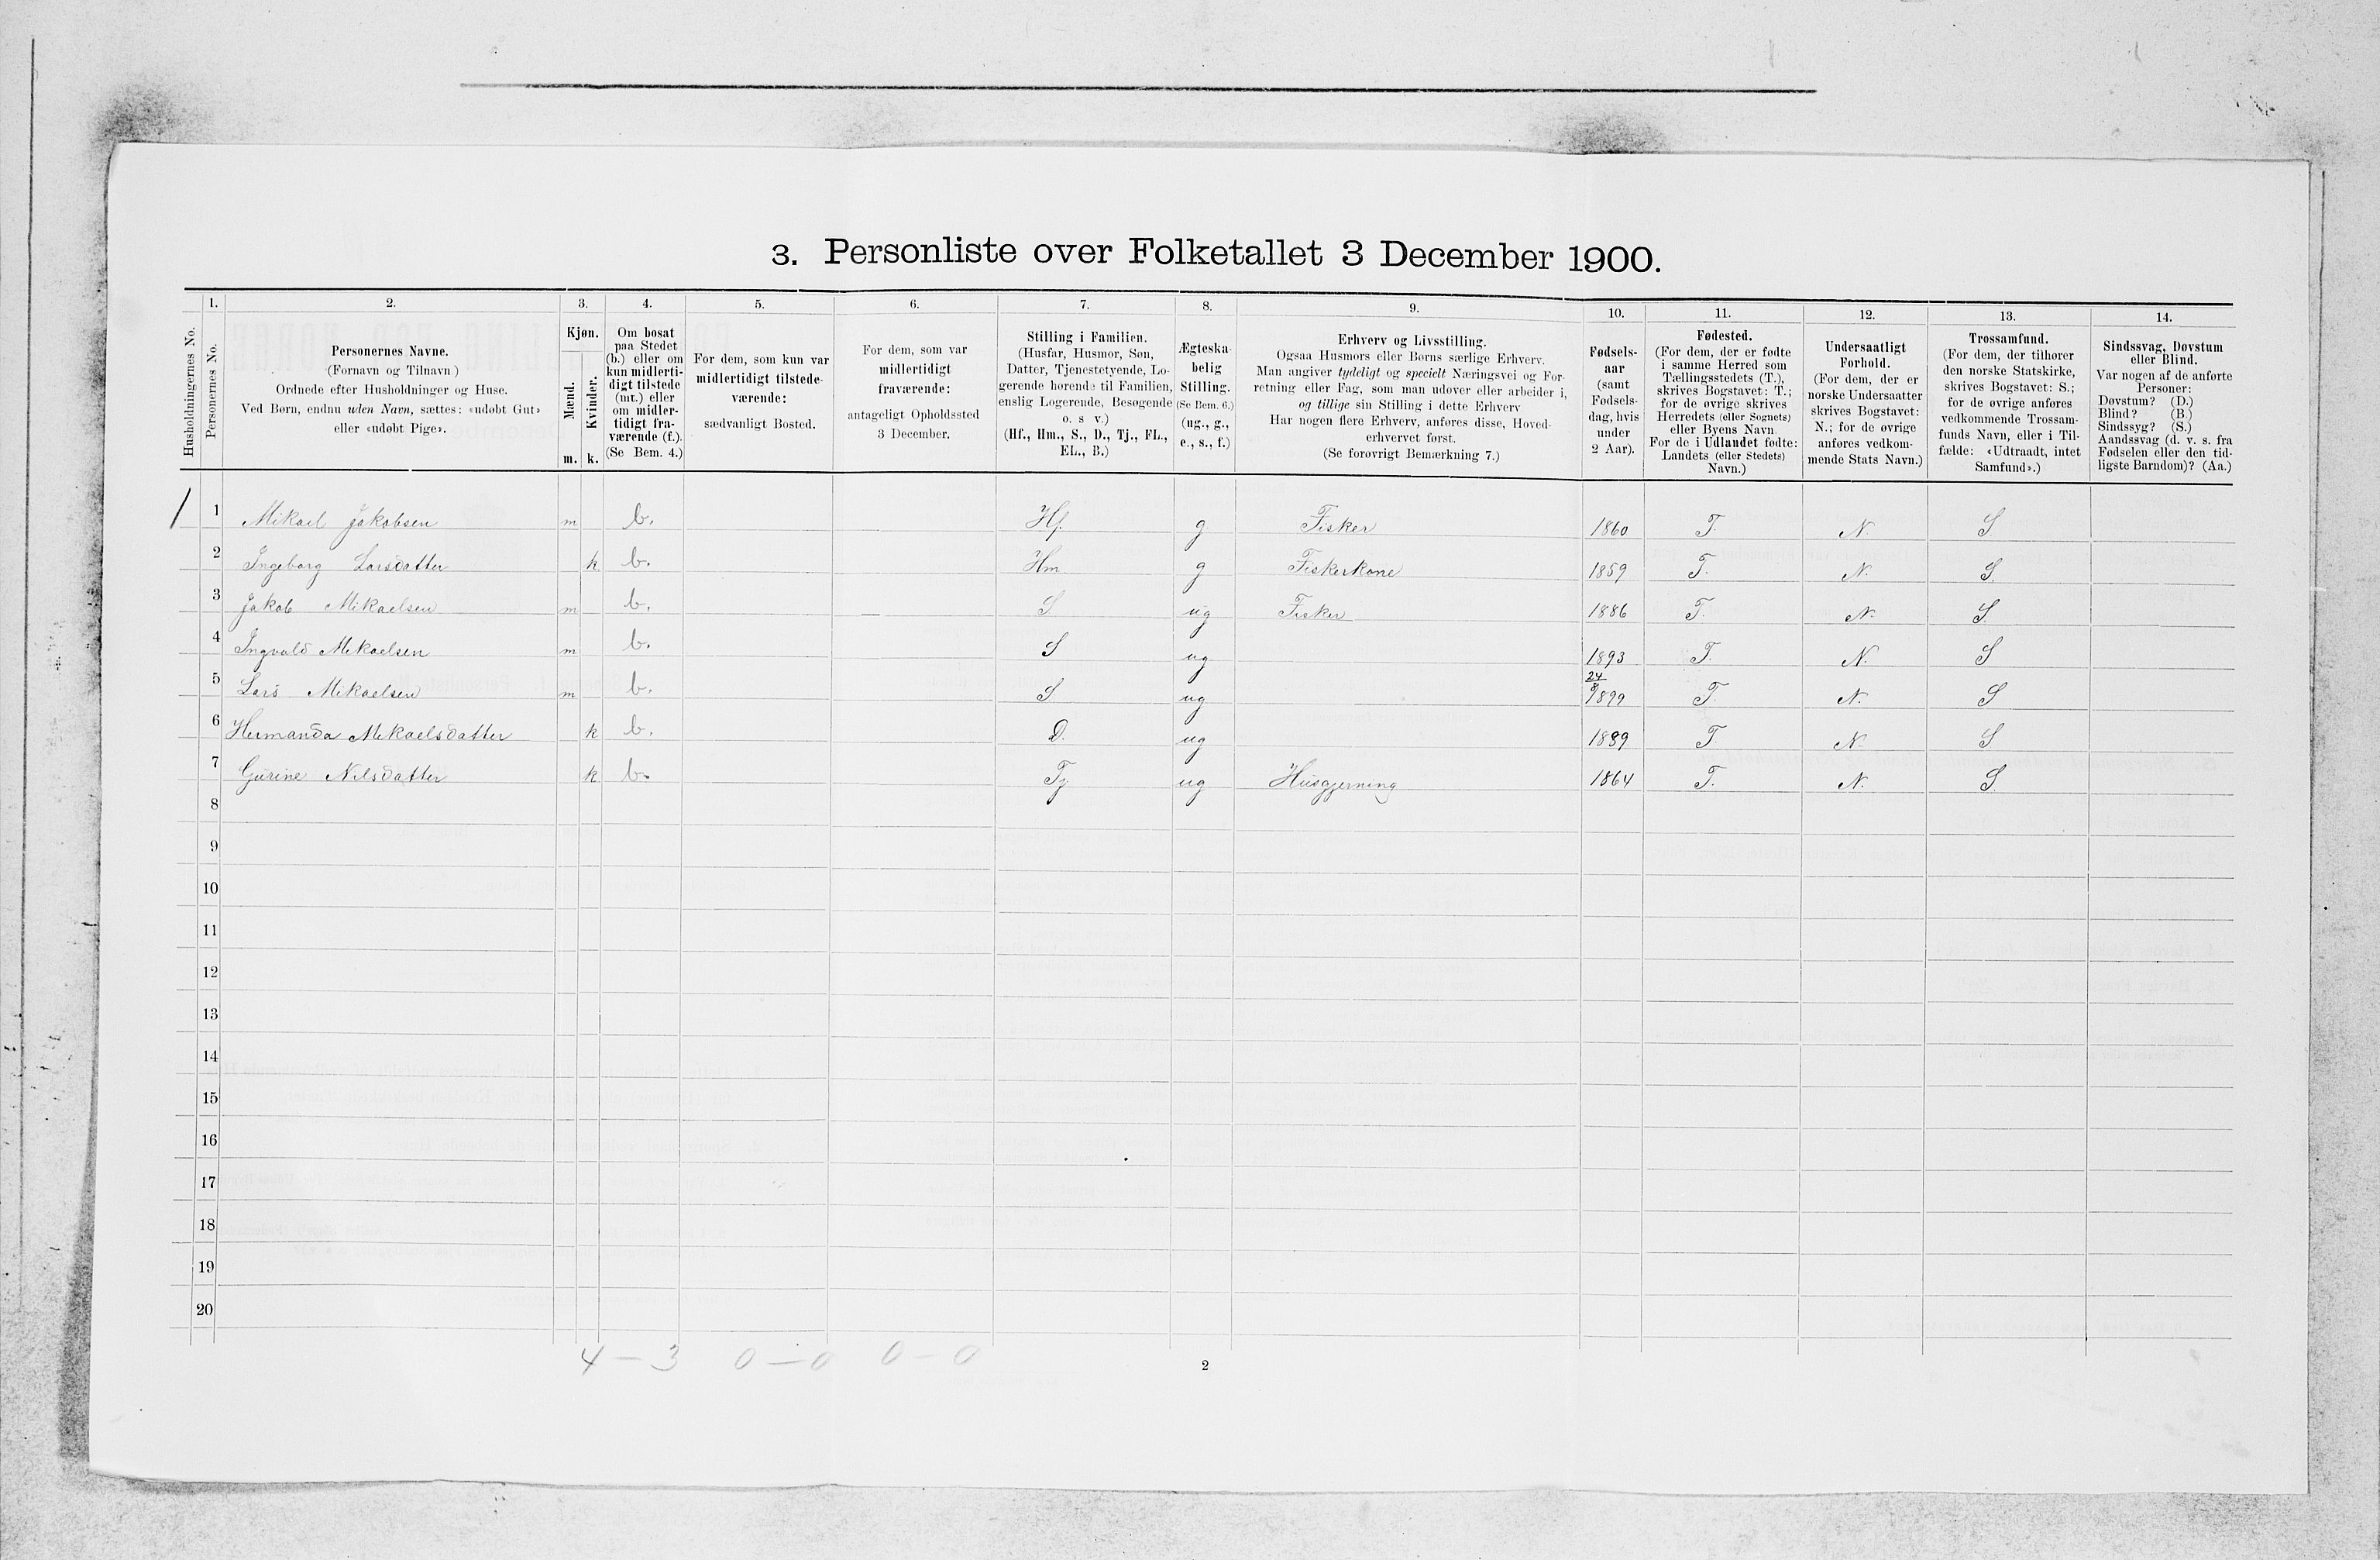 3. Personliste over Folketallet 3 December 1900.
1. 2. 3. 4. 5. 6. 7. 8. 9. 10. 11. 12. 13. 14.
Husholdningernes No.
Personernes No.
Personernes Navne.
(Fornavn og Tilnavn)
Ordnede efter Husholdninger og Huse.
Ved Børn, endnu uden Navn, sættes: «udøbt Gut»
eller «udøbt Pige».
Kjøn.
Mænd.
Kvinder.
m. k.
Om bosat
paa Stedet
(b.) eller om
kun midlerti-
digt tilstede
(mt.) eller
om midler-
tidigt fra-
værende (f.).
(Se Bem. 4.)
For dem, som kun var
midlertidigt tilstede-
værende:
sædvanligt Bosted.
For dem, som var
midlertidigt
fraværende:
antageligt Opholdssted
3 December.
Stilling i Familien.
(Husfar, Husmor, Søn,
Datter, Tjenestetyende, Lo-
gerende hørende til Familien,
enslig Logerende, Besøgende
o. s v.)
(Hf., Hm., S., D., Tj., FL.,
EL., B.)
Ægteska-
belig
Stilling.
(Se Bem. 6.)
(ug., g.,
e., s., f.)
Erhverv og Livsstilling.
Ogsaa Husmors eller Børns særlige Erhverv.
Man angiver tydeligt og specielt Næringsvei og For-
retning eller Fag, som man udøver eller arbeider i,
og tillige sin Stilling i dette Erhverv
Har nogen flere Erhverv, anføres disse, Hoved-
erhvervet først.
(Se forøvrigt Bemærkning 7.)
Fødsels-
aar
(samt
Fødsels-
dag, hvis
under
2 Aar).
Fødested.
(For dem, der er fødte
i samme Herred som
Tællingsstedets (T.),
skrives Bogstavet: T.;
for de øvrige skrives
Herredets (eller Sognets)
eller Byens Navn.
For de i Udlandet fødte:
Landets (eller Stedets)
Navn.)
Undersaatligt
Forhold.
(For dem, der er
norske Undersaatter
skrives Bogstavet:
N.; for de øvrige
anføres vedkom-
mende Stats Navn.)
Trossamfund.
(For dem, der tilhører
den norske Statskirke,
skrives Bogstavet: S.;
for de øvrige anføres
vedkommende Trossam-
funds Navn, eller i Til-
fælde: «Udtraadt, intet
Samfund».)
Sindssvag, Døvstum
eller Blind.
Var nogen af de anførte
Personer:
Døvstum? (D.)
Blind? (B.)
Sindssyg? (S.)
Aandssvag (d. v. s. fra
Fødselen eller den tid-
ligste Barndom)? (Aa.)
1 1 Mikael Jakobsen m b. Hf. g Fisker 1860 T. N. S
2 Ingeborg Larsdatter k b. Hm g Fiskerkone 1859 T. N. S
3 Jakob Mikaelsen m b. — S ug Fisker 1886 T. N. S
4 Ingvald Mikaelsen m b. S ug 1893 T. N. S
5 Lars Mikaelsen m b. S ug 24/8 1899 T N. S
6 Hermanda Mikaelsdatter k b. D. ug 1889 T N. S
7 Gurine Nilsdatter k b. Tj ug Husgjerning 1864 T. N. S
8
9
10
11
12
13
14
15
16
17
18
19
20
4 – 3 0 – 0 0 – 0
2